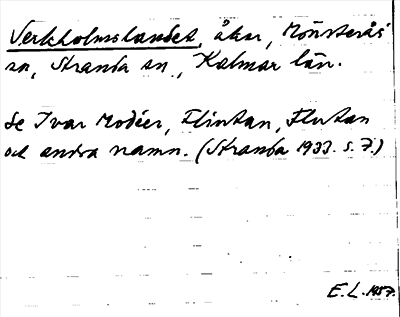 Verkholmslandet, åker, Mönsterås
sn, Stranda sn, Kalmar län.
Se Ivar Modéer, Flintan, Flutan
och andra namn. (Stranda 1933. s. 7.)
E.L. 1957.